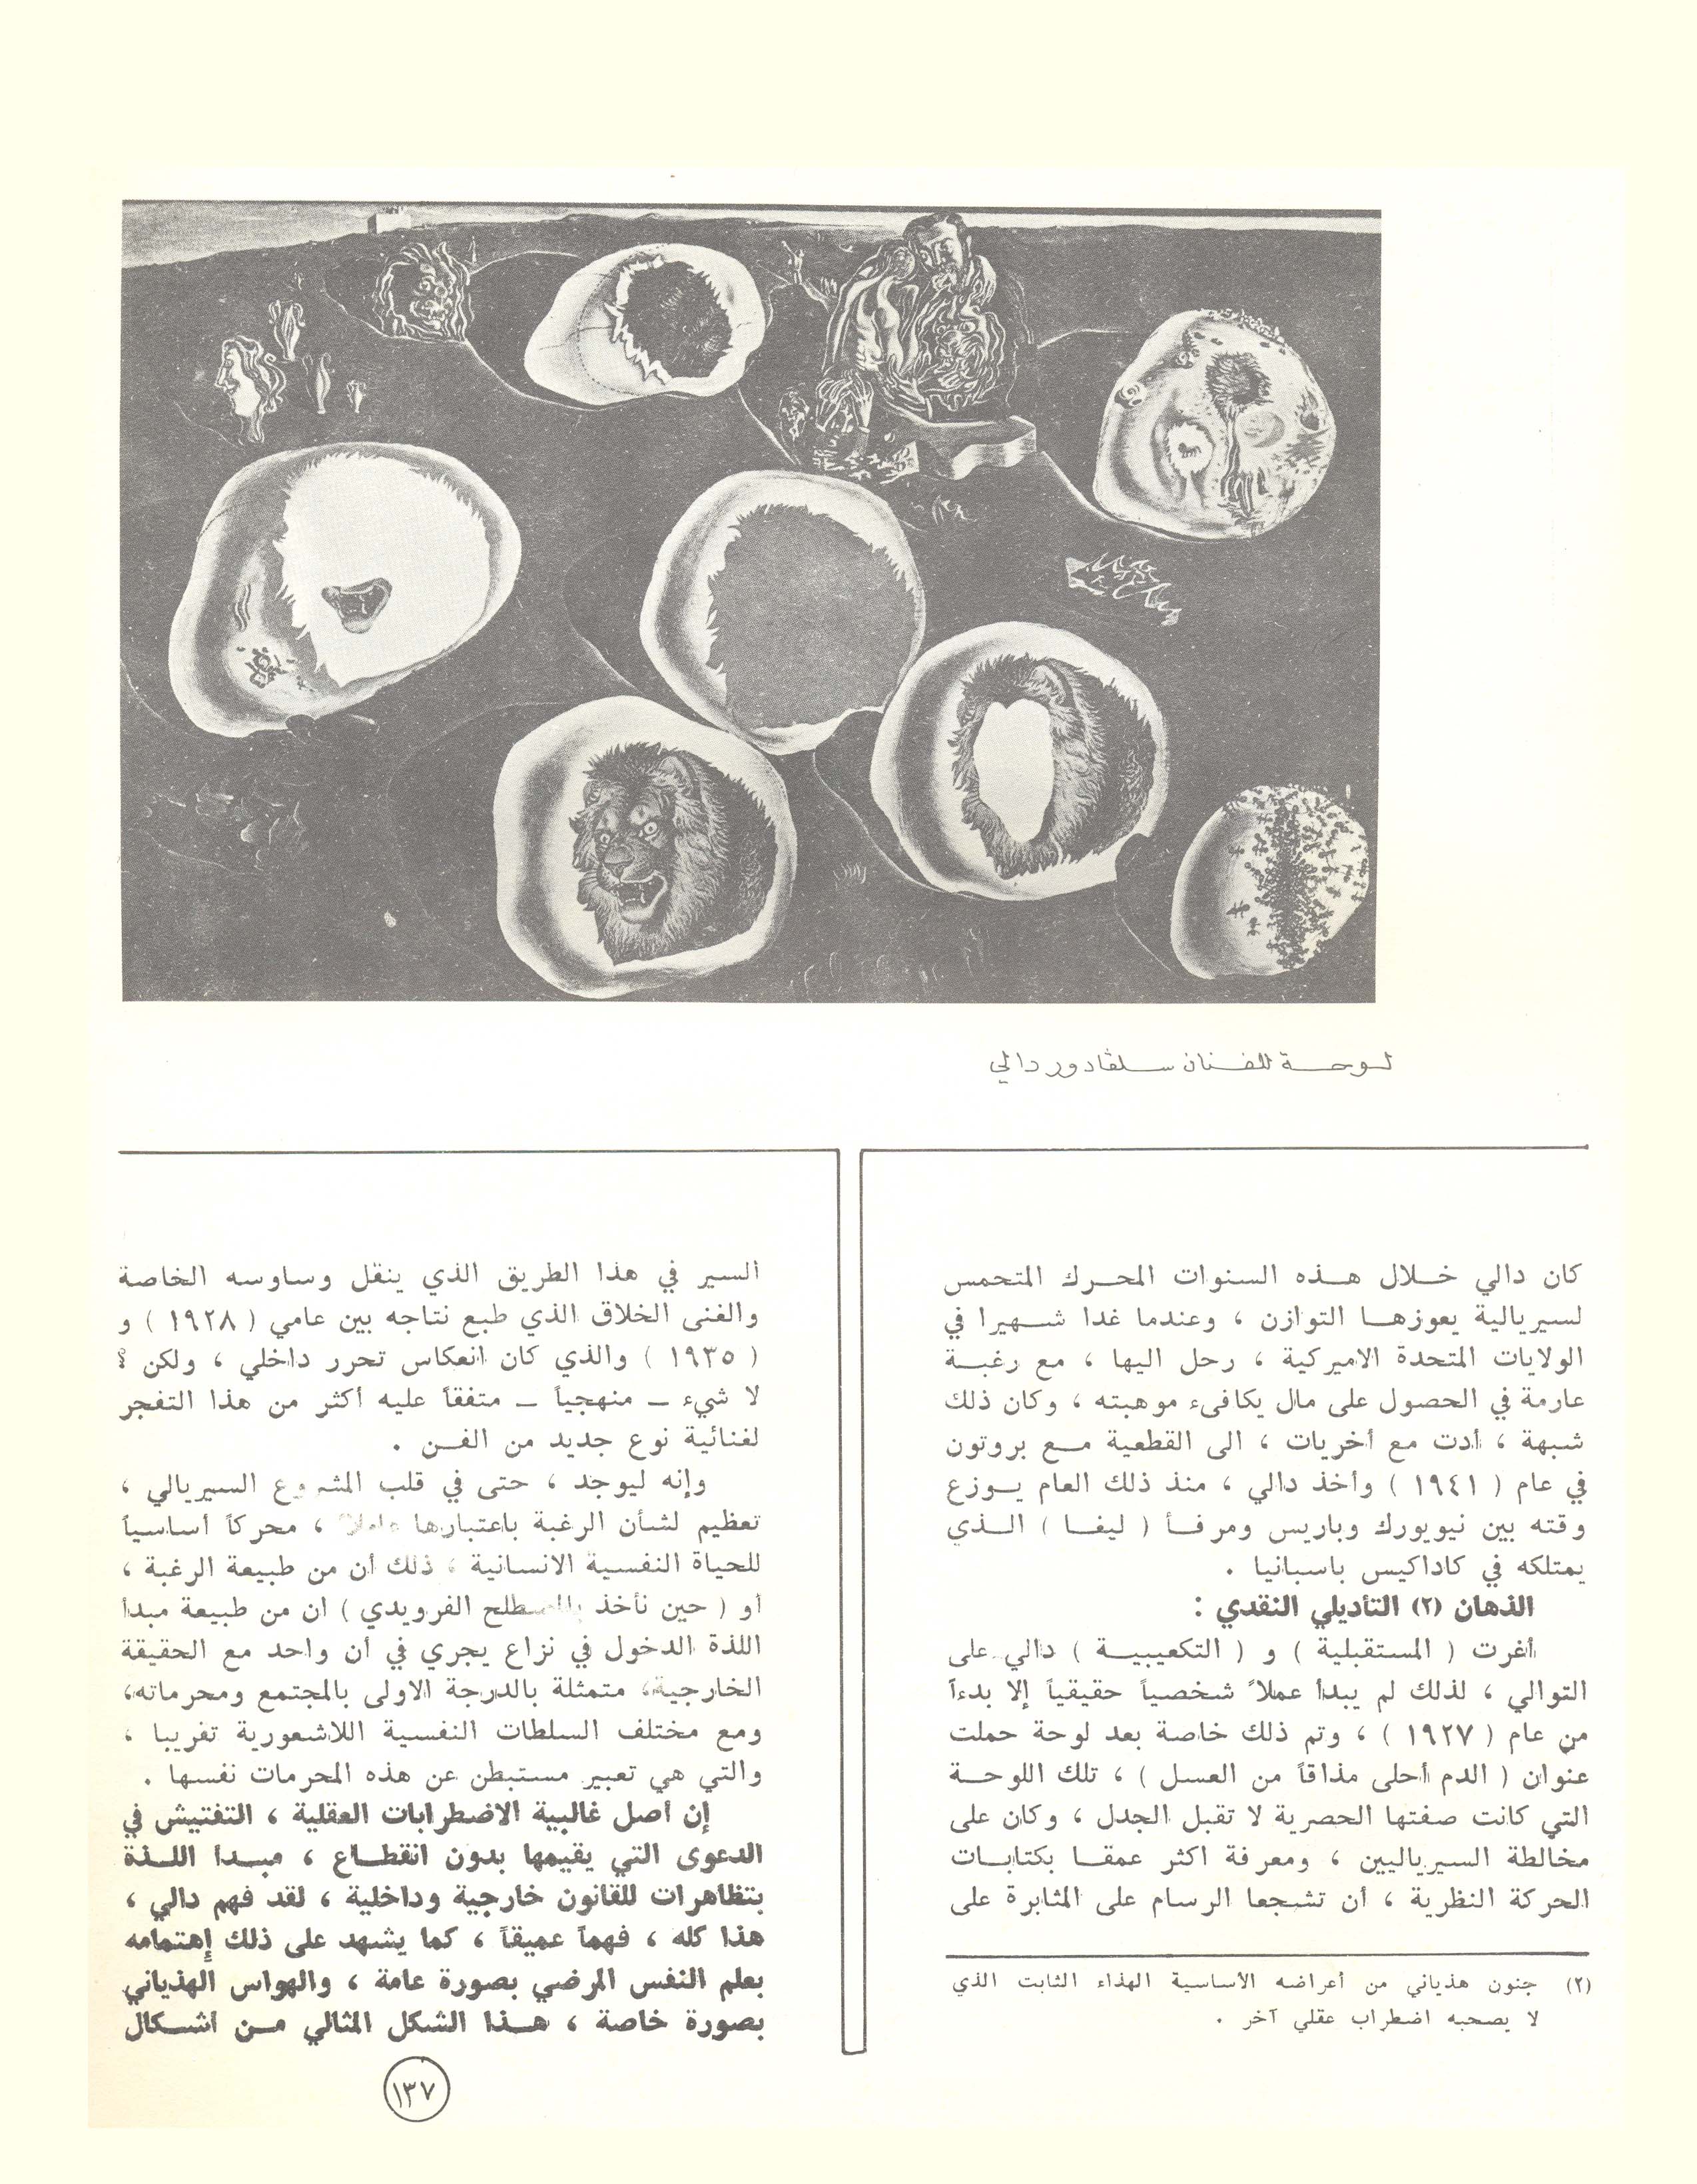 لـوحـــة للفـنـان سـلڤادور دالي
كان دالي خـــلال هـــذه السنوات المحـرك المتحمس
لسيريالية يعوزهــا التوازن ، وعندما غدا شــهيرا في
الولايات المتحدة الاميركية ، رحل اليها ، مع رغبــة
عارمة في الحصول على مال يكافىء موهبته ، وكان ذلك
شبهة ، أدت مع أخريات ، الى القطعية مــع بروتون
في عام ( ١٩٤١ ) وأخذ دالي ، منذ ذلك العام يــوزع
وقته بين نيويورك وباريس ومرفــأ ( ليفــا ) الــذي
يمتلكه في كاداكيس باسبانيا .
الذهان (٢) التأديلي النقدي :
أغرت ( المستقبلية ) و ( التكعيبيــة ) دالي على
التوالي ، لذلك لم يبدأ عملاً شخصياً حقيقياً إلا بدءاً
من عام ( ١٩٢٧ ) ، وتم ذلك خاصة بعد لوحة حملت
عنوان ( الدم أحلى مذاقاً من العسل ) ، تلك اللوحــة
التي كانت صفتها الحصرية لا تقبل الجدل ، وكان على
مخالطة السيرياليين ، ومعرفة اكثر عمقــا بكتابــات
الحركة النظرية ، أن تشجعا الرسام على المثابرة على
(٢) جنون هذياني من أعراضه الأساسية الهذاء الثابت الذي
لا يصحبه اضطراب عقلي آخر .
السير في هذا الطريق الذي ينقل وساوسه الخاصة
والغنى الخلاق الذي طبع نتاجه بين عامي ( ١٩٢٨ ) و
( ١٩٣٥ ) والذي كان انعكاس تحرر داخلي ، ولكن ؟
لا شيء – منهجياً – متفقاً عليه أكثر من هذا التفجر
لغنائية نوع جديد من الفــن .
وإنه ليوجد ، حتى في قلب المشروع السيريالي ،
تعظيم لشأن الرغبة باعتبارها عاملاً ، محركاً أساسياً
للحياة النفسية الانسانية ، ذلك أن من طبيعة الرغبة ،
أو ( حين نأخذ بالمصطلح الفرويدي ) ان من طبيعة مبدأ
اللذة الدخول في نزاع يجري في أن واحد مع الحقيقة
الخارجية، متمثلة بالدرجة الاولى بالمجتمع ومحرماته،
ومع مختلف السلطات النفسية اللاشعورية تقريبا ،
والتي هي تعبير مستبطن عن هذه المحرمات نفسها .
إن أصل غالبية الاضطرابات العقلية ، التفتيش في
الدعوى التي يقيمها بدون انقطــاع ، مبــدأ اللــذة
بتظاهرات للقانون خارجية وداخلية ، لقد فهم دالي ،
هذا كله ، فهماً عميقاً ، كما يشهد على ذلك إهتمامه
بعلم النفس المرضي بصورة عامة ، والهواس الهذياني
بصورة خاصة ، هــذا الشكل المثالي مــن اشــكال
١٣٧